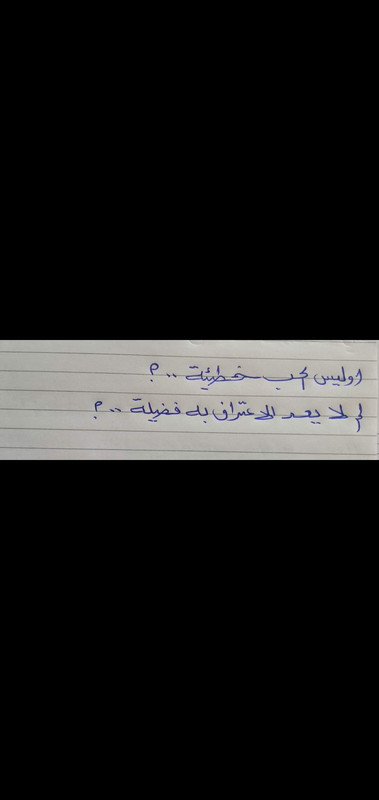 اوليس الحب خطيئة ..؟
لم لا يعد الاعتراف به فضيلة ..؟